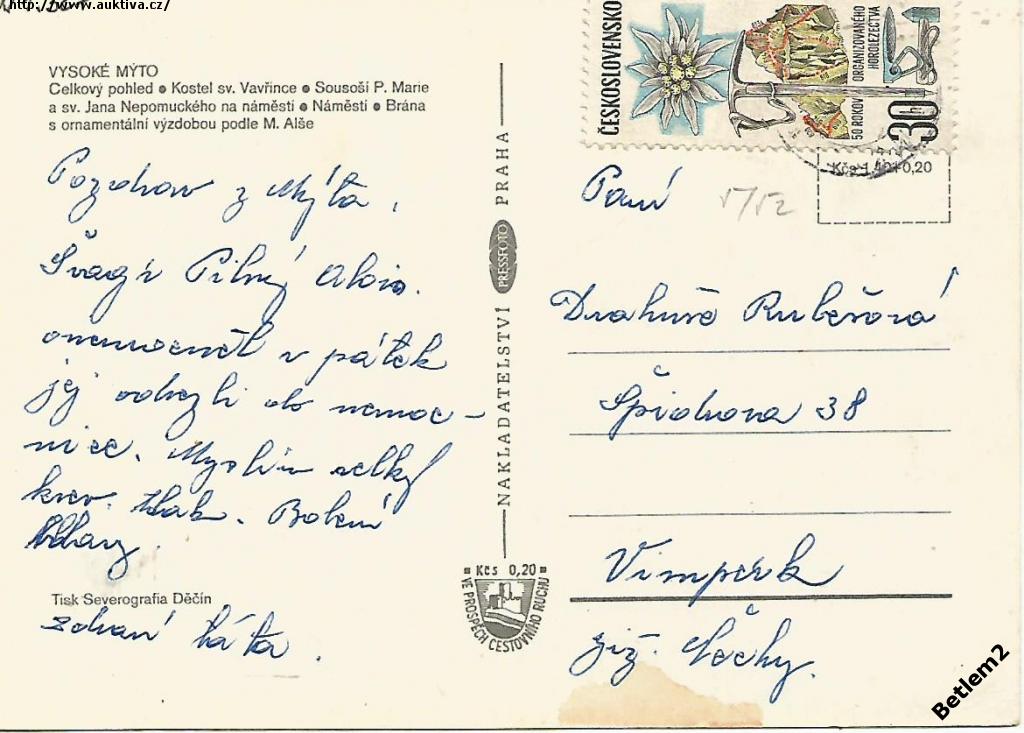 http://www.auktiva.cz/
VYSOKÉ MÝTO
Celkový pohled ● Kostel sv. Vavřince ● Sousoší P. Marie
a sv. Jana Nepomuckého na náměstí ● Náměstí ● Brána
s ornamentální výzdobou podle M. Alše
Pozdrav z Mýta,
Švagr Pilný Alois.
onemocněl v pátek
jej odvezli do nemoc-
nice. Myslím velký
krev. tlak. Bolení
hlavy.
Tisk Severografia Děčín
zdraví táta.
NAKLADATELSTVÍ PRESSFOTO PRAHA
Kčs 0,20
VE PROSPĚCH CESTOVNÍHO RUCHU
ČESKOSLOVENSKO
50 ROKOV ORGANIZOVANÉHO
HOROLEZECTVA
30
Kčs 1,40+0,20
Paní
Drahuše Rubešová
Špidrova 38
Vimperk
již. Čechy.
Betlem2